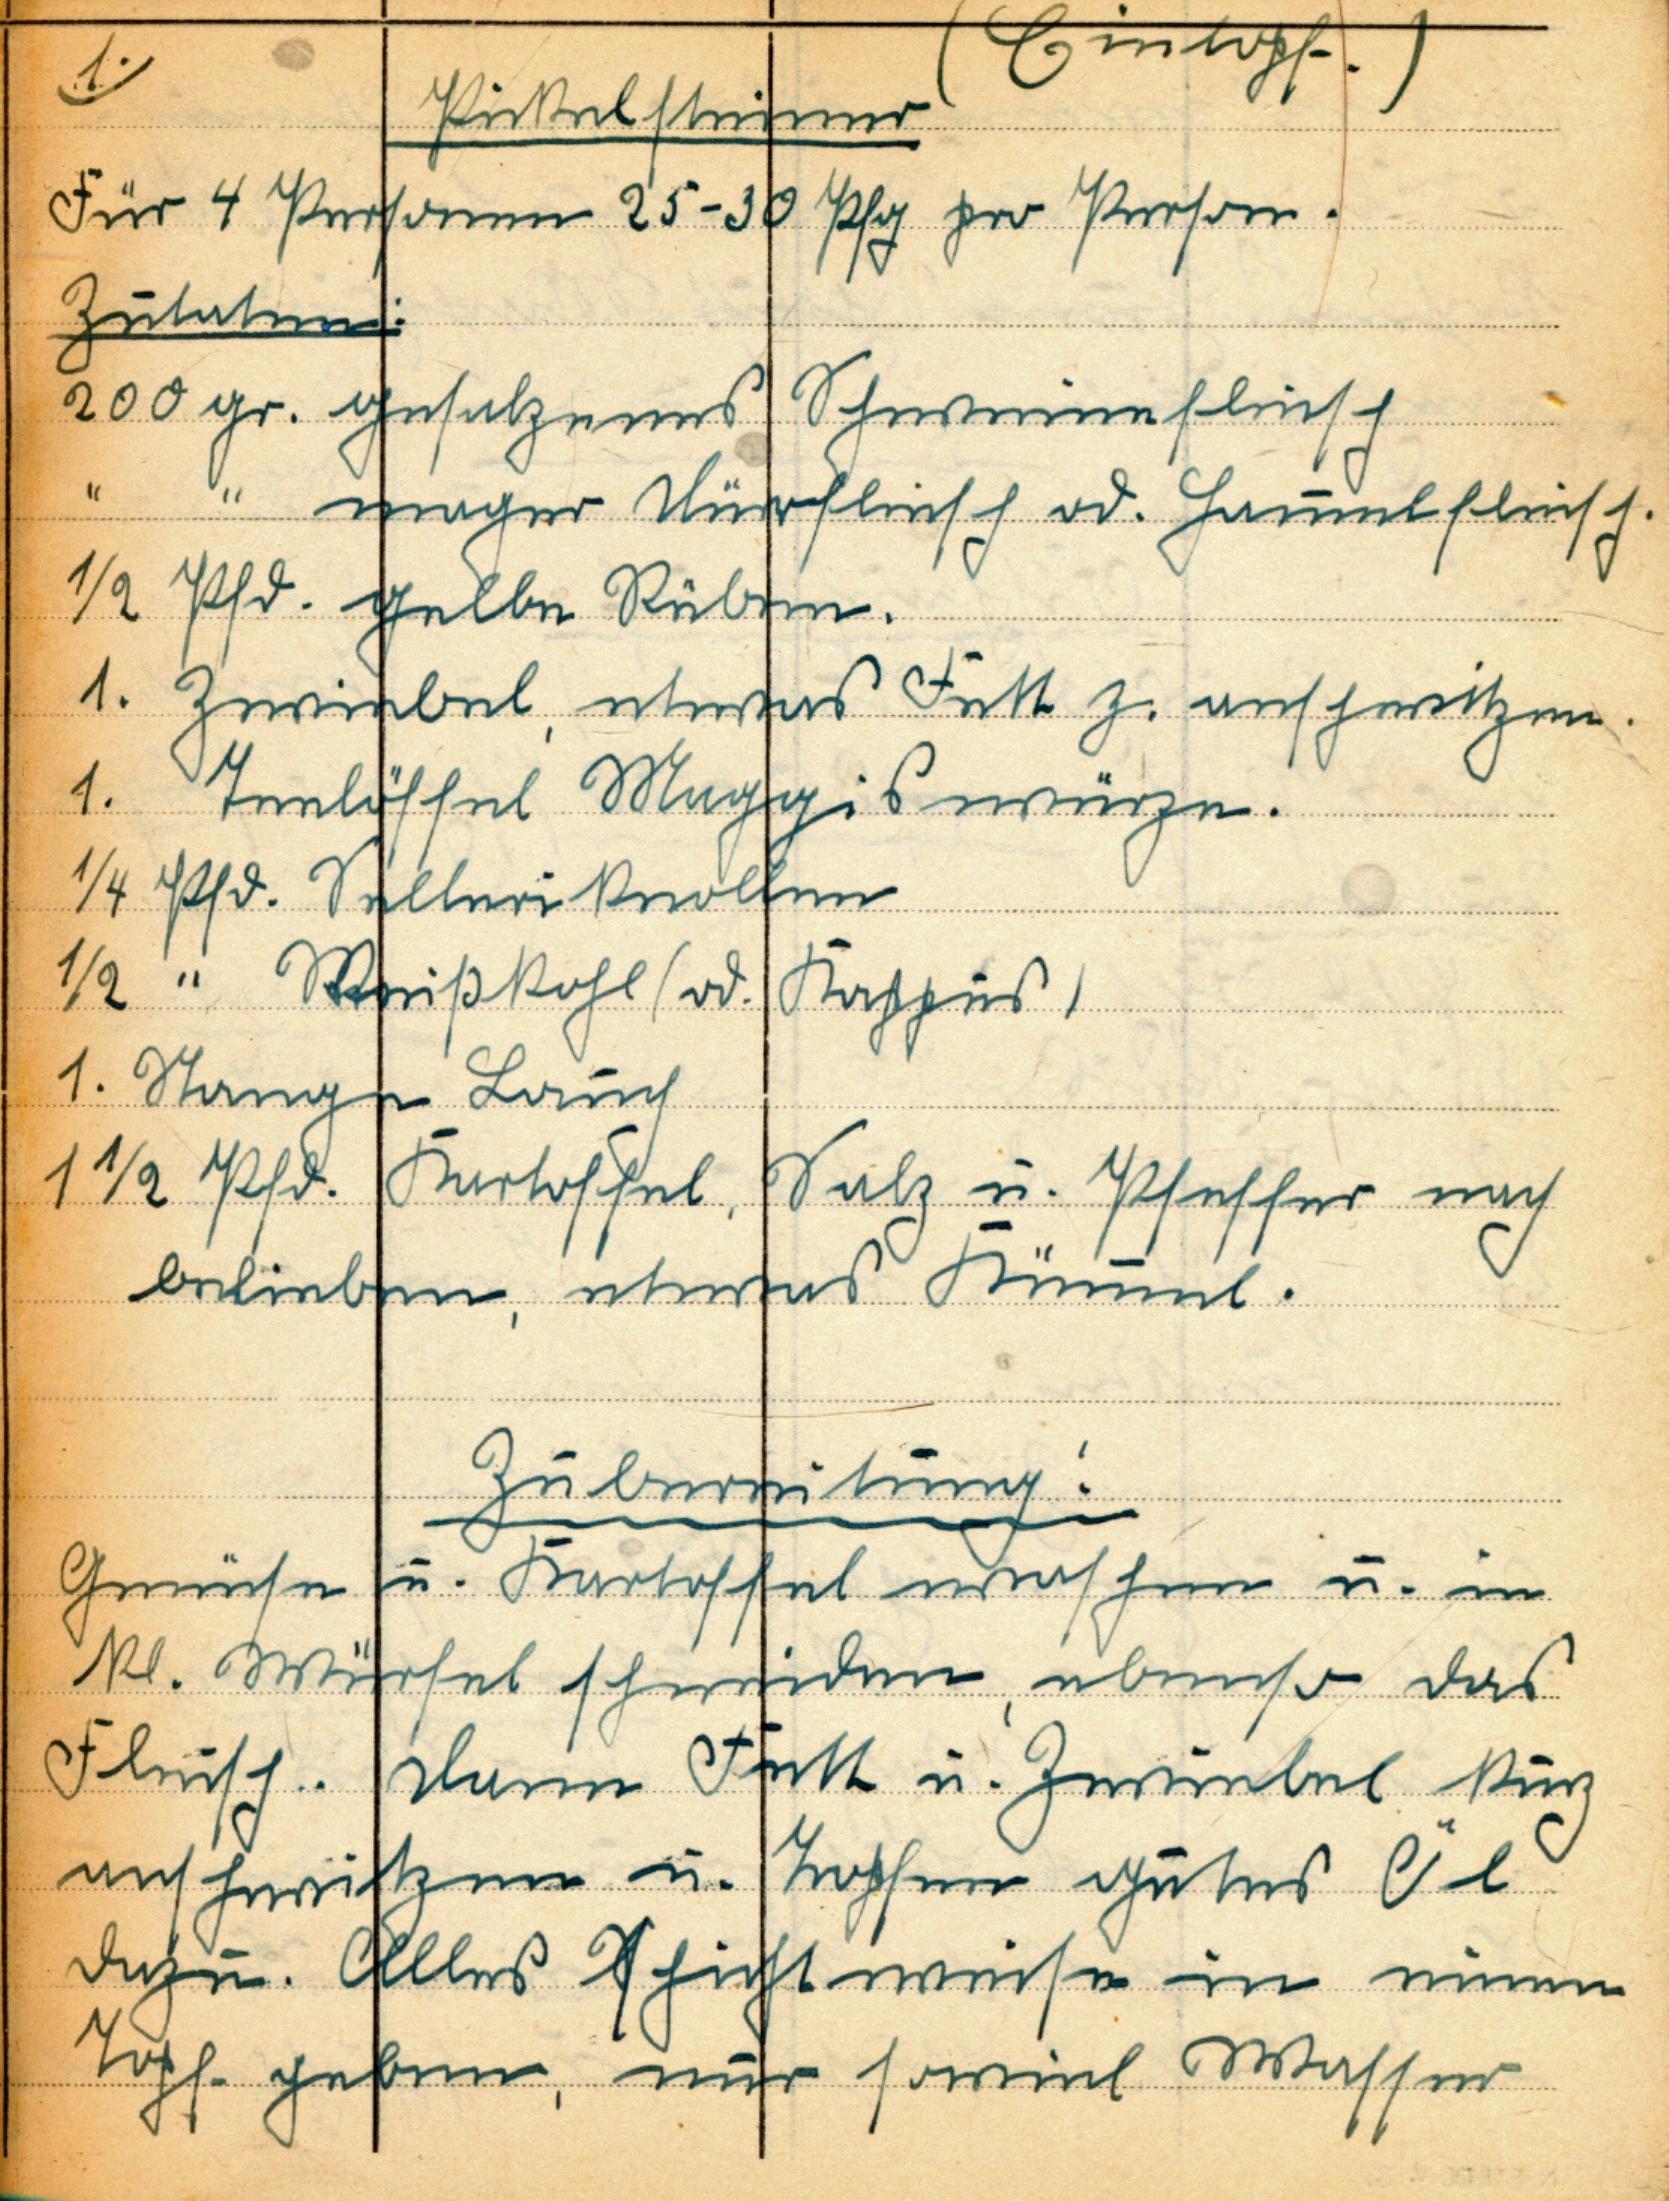 1.
(Eintopf.)
Pickelsteiner
Für 4 Personen 25-30 Pfg pro Person.
Zutaten:
200 gr. gesalzenes Schweinefleisch
" " mager Dürrfleisch od. Ham̄elfleisch.
1/2 Pfd. gelbe Rüben.
1. Zwiebel, etwas Fett z. anschwitzen.
1. Teelöffel Maggis würze.
1/4 Pfd. Sellerieknollen
1/2 " Weißkohl (od. Kappus)
1. Stange Lauch
1 1/2 Pfd. Kartoffel, Salz u. Pfeffer nach
belieben, etwas Küm̄el.
Zubereitung:
Gemüse u. Kartoffel waschen u. in
kl. Würfel schneiden, ebenso das
Fleisch.. Dann Fett u. Zwiebel kurz
anschwitzen u. Tropfen gutes Öl
dazu. Alles Schichtweise in einen
Topf geben, nur soviel Wasser